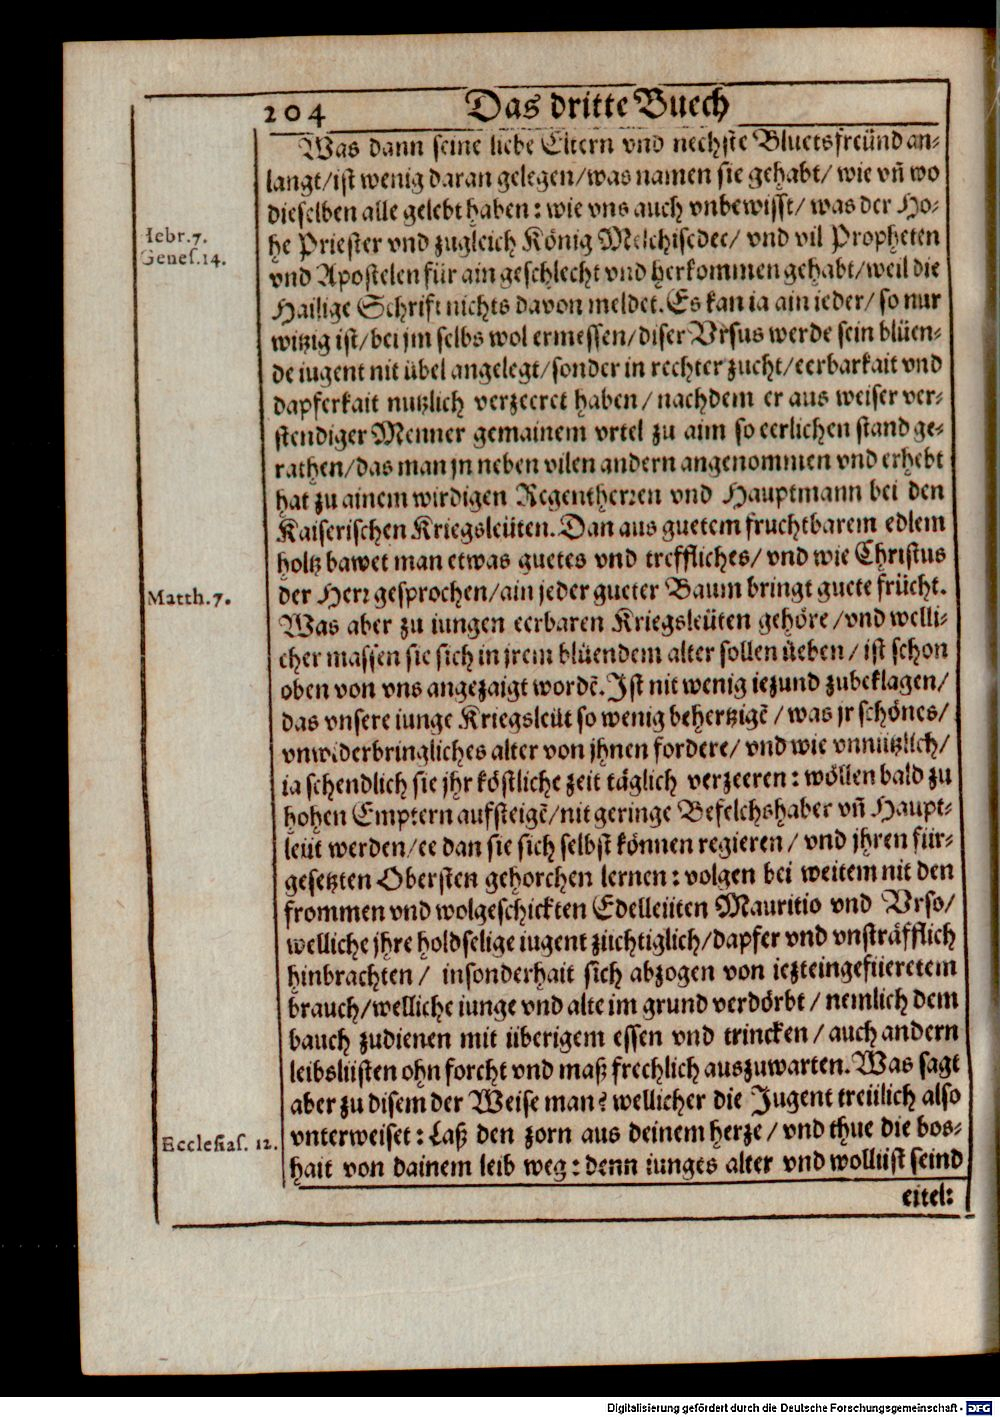 204 Das dritte Buech
Was dann seine liebe Eltern vnd nechste Bluetsfreünd an-
langt/ist wenig daran gelegen/was namen sie gehabt/ wie vñ wo
dieselben alle gelebt haben: wie vns auch vnbewisst/ was der Ho-
Hebr.7.
he Priester vnd zugleich König Melchisedec/ vnd vil Propheten
Genes.14.
vnd Apostelen für ain geschlecht vnd herkommen gehabt/weil die
Hailige Schrift nichts davon meldet. Es kan ia ain ieder/ so nur
witzig ist/bei jm selbs wol ermessen/diser Vrsus werde sein blüen-
de iugent nit übel angelegt/sonder in rechter zucht/eerbarkait vnd
dapferkait nutzlich verzeeret haben/ nachdem er aus weiser ver-
stendiger Menner gemainem vrtel zu aim so eerlichen stand ge-
rathen/das man jn neben vilen andern angenommen vnd erhebt
hat zu ainem wirdigen Regentherren vnd Hauptmann bei den
Kaiserischen Kriegsleüten. Dan aus guetem fruchtbarem edlem
holtz bawet man etwas guetes vnd treffliches/ vnd wie Christus
Matth.7.
der Herr gesprochen/ain jeder gueter Baum bringt guete frücht.
Was aber zu iungen eerbaren Kriegsleüten gehöre/vnd welli-
cher massen sie sich in jrem blüendem alter sollen üeben/ ist schon
oben von vns angezaigt wordẽ. Ist nit wenig iezund zubeklagen/
das vnsere iunge Kriegsleüt so wenig behertzigẽ/was jr schönes/
vnwiderbringliches alter von jhnen fordere/ vnd wie vnnützlich/
ia schendlich sie jhr köstliche zeit täglich verzeeren: wöllen bald zu
hohen Emptern aufsteigẽ/nit geringe Befelchshaber vñ Haupt-
leüt werden/ee dan sie sich selbst können regieren/ vnd jhren für-
gesetzten Obersten gehorchen lernen: volgen bei weitem nit den
frommen vnd wolgeschickten Edelleüten Mauritio vnd Vrso/
welliche jhre holdselige iugent züchtiglich/dapfer vnd vnsträfflich
hinbrachten/ insonderhait sich abzogen von iezteingefüeretem
brauch/welliche iunge vnd alte im grund verdörbt/ nemlich dem
bauch zudienen mit überigem essen vnd trincken/ auch andern
leibslüsten ohn forcht vnd maß frechlich auszuwarten. Was sagt
aber zu disem der Weise man? wellicher die Jugent treülich also
Ecclesias. 12.
vnterweiset: Laß den zorn aus deinem herze/ vnd thue die bos-
hait von dainem leib weg: denn iunges alter vnd wollüst seind
eitel:
Digitalisierung gefördert durch die Deutsche Forschungsgemeinschaft - DFG